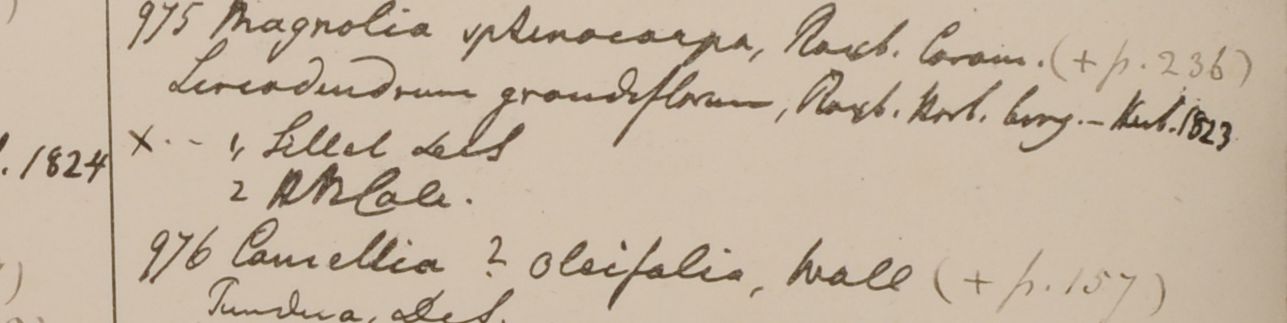 975 Magnolia sphenocarpa, Roxb. Corom. (+ p. 236)
Liriodendrum grandiflorum, Roxb. Hort. beng. - Herb. 1823
. 1824 X - - 1, Sillet
2 HBCalc.
976 Camellia ? oleifolia, Wall (+ p. 157)
Tundua,